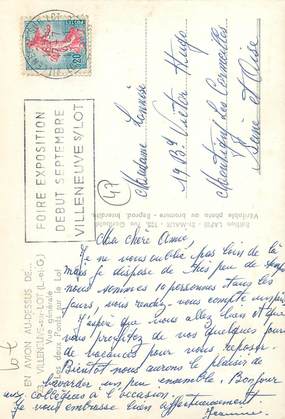 FOIRE EXPOSITION
DEBUT SEPTEMBRE
VILLENEUVE S/LOT
0,20
Madame
19 Bis Victor Hugo
Montigny les Cormeilles
Seine et Oise
47
Lot
EN AVION AU-DESSUS DE...
VILLENEUVE-sur-LOT (L.-et-G.)
Vue générale
Les deux Ponts sur le Lot
Editions LAPIE
Véritable photo au bromure - Reprod. Interdite
Ma chère Amie,
Je ne vous oublie pas loin de là
mais je dispose de très peu de temps
nous sommes 10 personnes tous les
jours, vous rendez-vous compte
J'espère que vous allez bien et que
vous profitez de vos quelques jours
de vacances pour vous reposer.
Bientôt nous aurons le plaisir de
bavarder un peu ensemble. Bonjour
aux collègues à l'occasion.
Je vous embrasse bien affectueusement